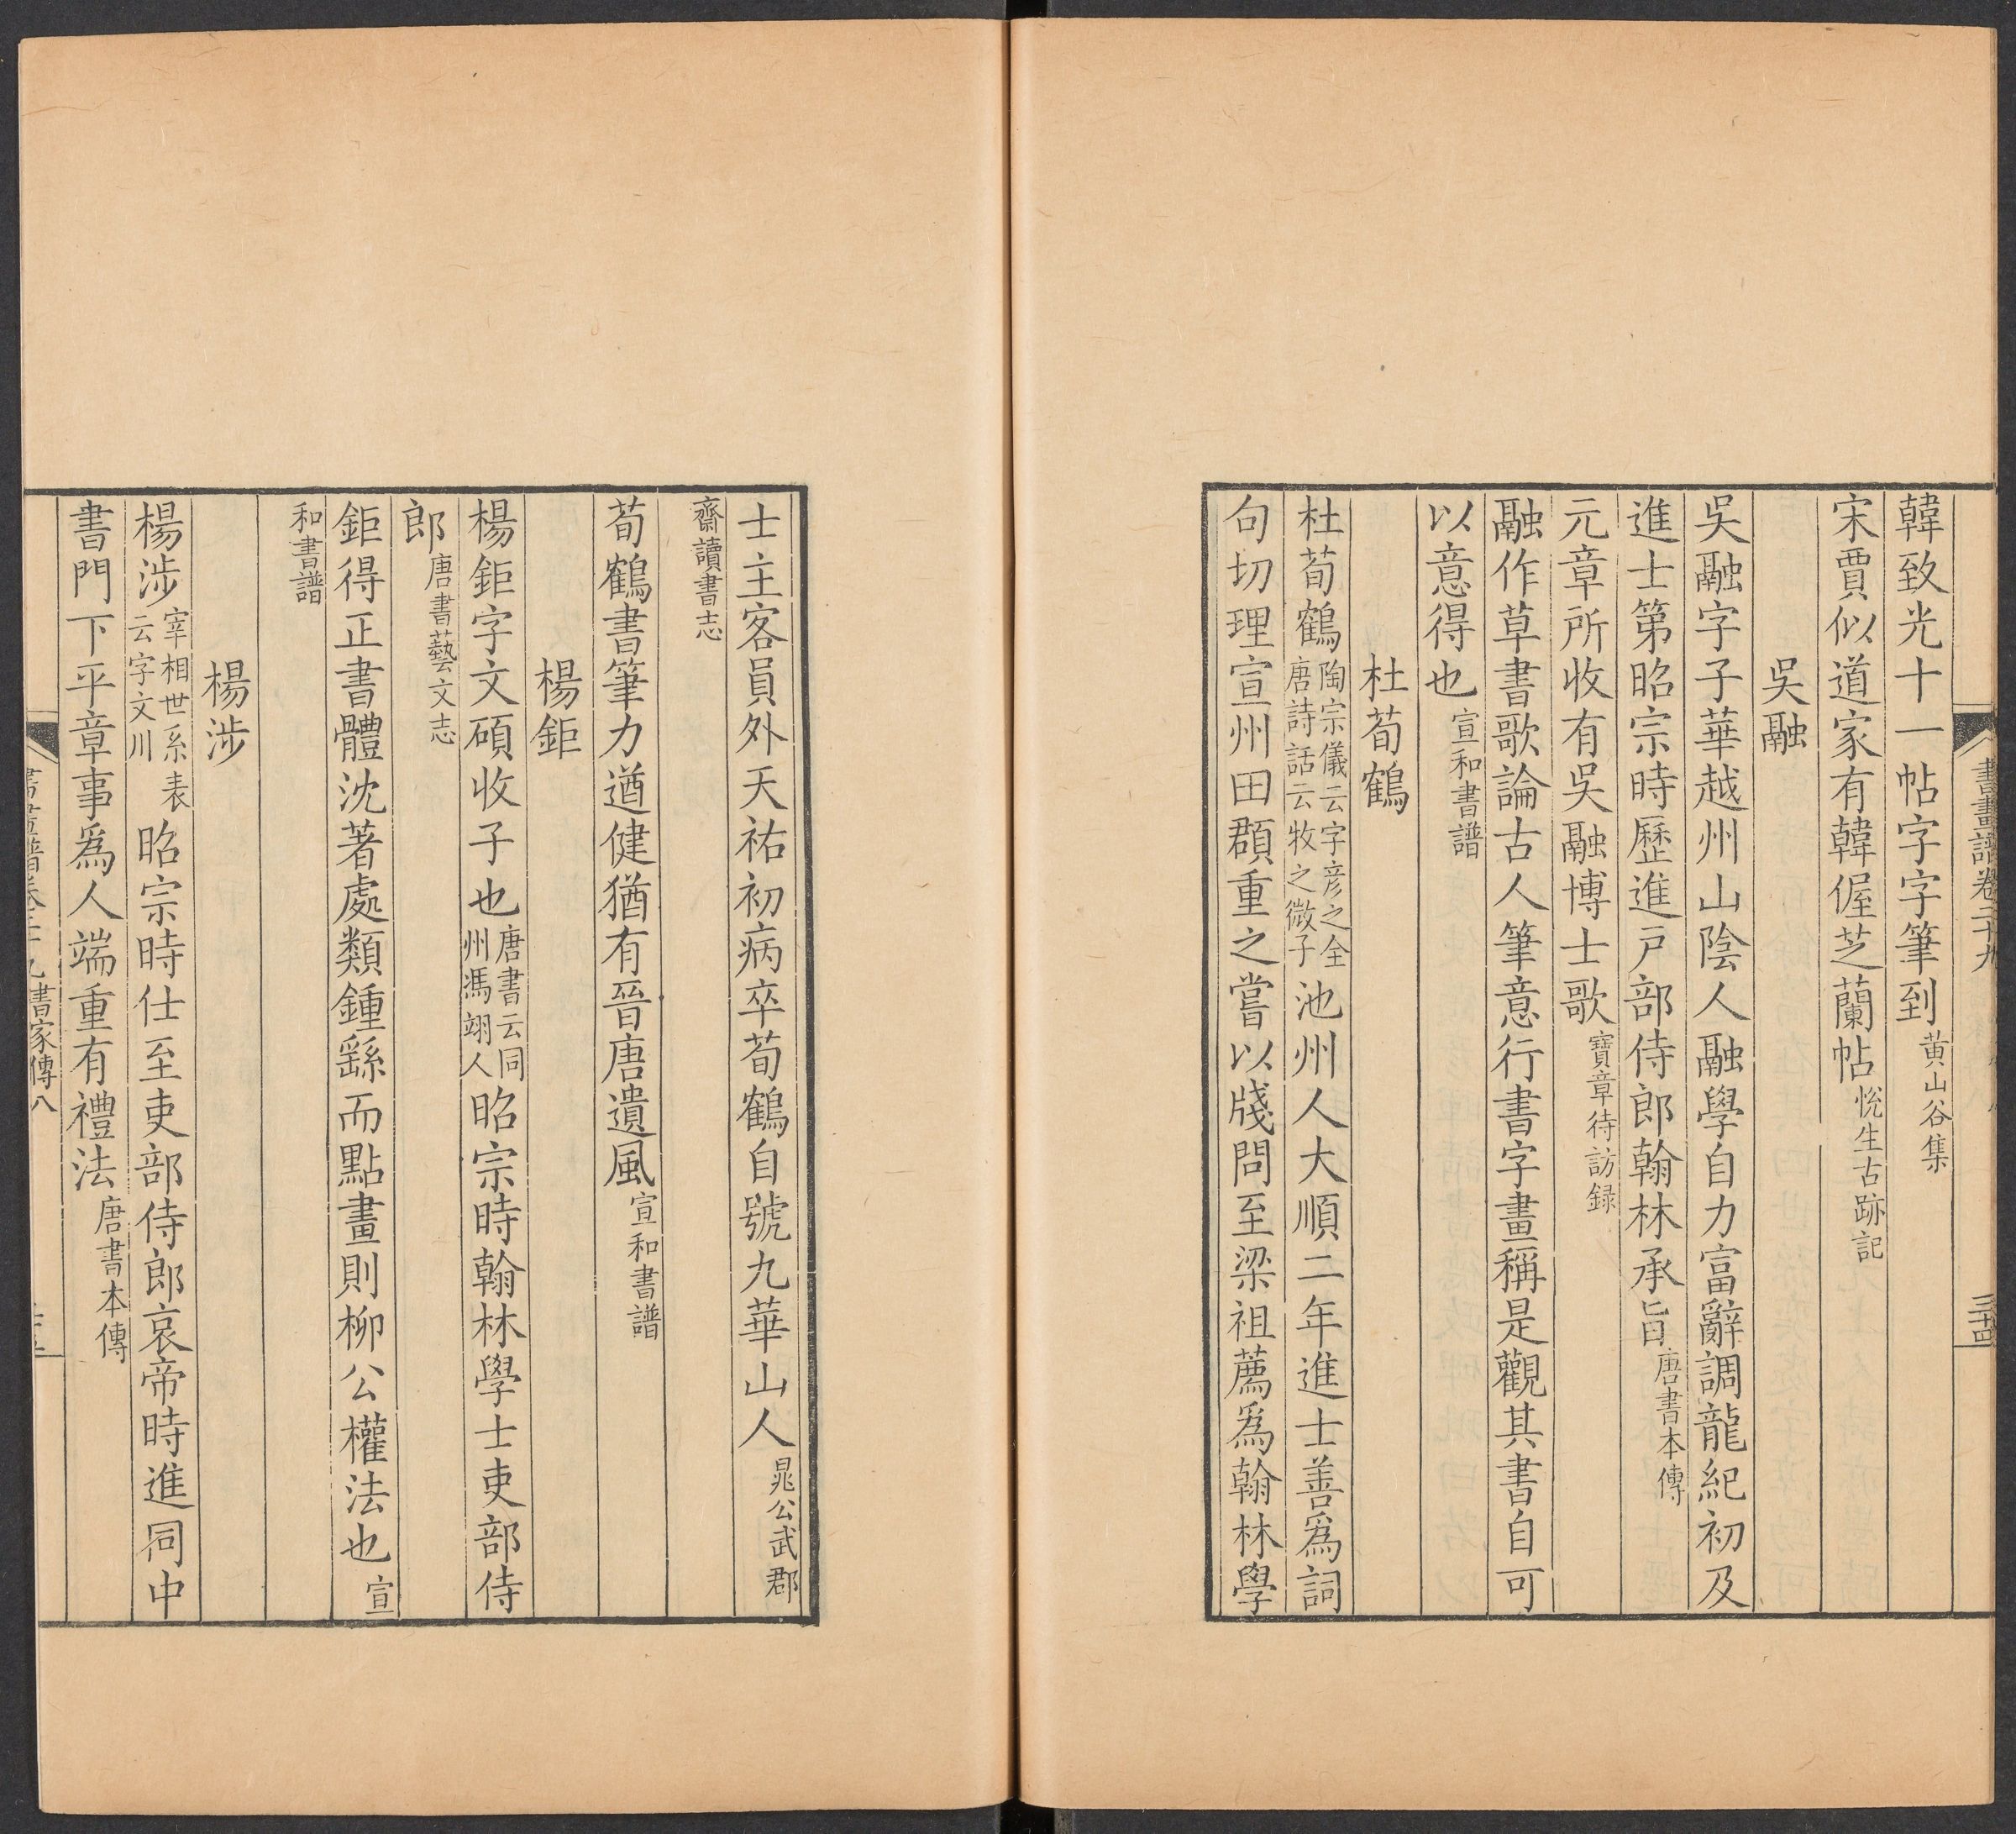 韓致光十一帖字字筆到黄山谷集
宋賈似道家有韓偓芝蘭帖悦生古跡記
吳融
吳融字子華越州山陰人融學自力富辭調龍紀初及
進士第昭宗時歷進戸部侍郎翰林承旨唐書本傳
元章所收有吳融博士歌寶章待訪録
融作草書歌論古人筆意行書字畫稱是觀其書自可
以意得也宣和書譜
杜荀鶴
杜荀鶴陶宗儀云字彦之全唐詩話云牧之微子池州人大順二年進士善爲詞
句切理宣州田頵重之嘗以牋問至梁祖薦爲翰林學
書畫譜卷三十九
三十四
士主客員外天祐初病卒荀鶴自號九華山人晁公武郡
齋讀書志
荀鶴書筆力遒健猶有晉唐遺風宣和書譜
楊鉅
楊鉅字文碩收子也唐書云同州馮翊人昭宗時翰林學士吏部侍
郎唐書藝文志
鉅得正書體沈著處類鍾繇而點畫則柳公權法也宣
和書譜
楊涉
楊涉宰相世系表云字文川昭宗時仕至吏部侍郎哀帝時進同中
書門下平章事爲人端重有禮法唐書本傳
書家傳八